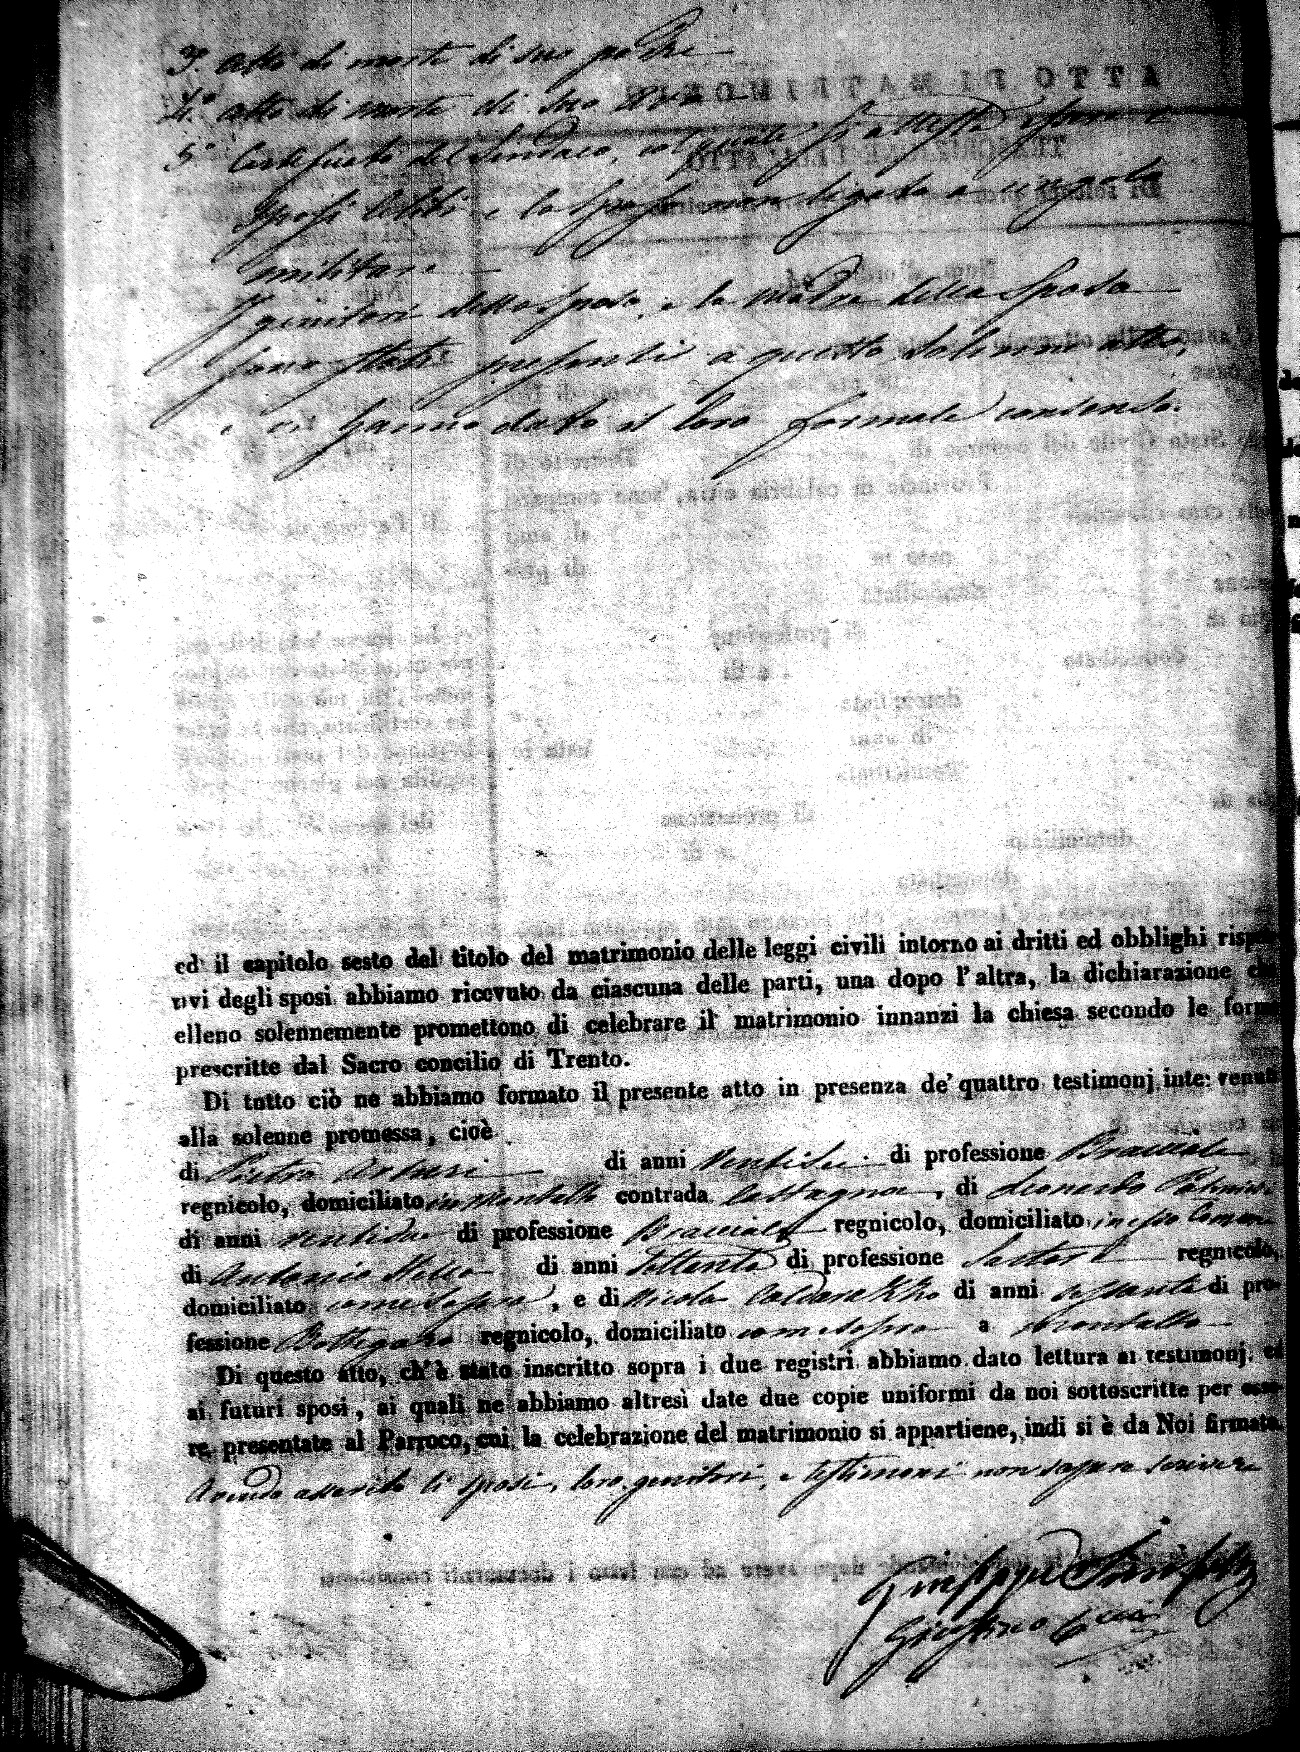 3º Atto di morte di suo padre
4º Atto di morte di suo
5º Certificato del Sindaco, col quale si attesta essere i
Sposi celibi e lo sposo non legato a cingolo
militare
I genitori dello sposo, e la madre della sposa
sono stati presenti a questo solenne atto,
e vi hanno dato il loro formale consenso.
ed il capitolo sesto del titolo del matrimonio delle leggi civili intorno ai dritti ed obblighi rispet
tivi degli sposi abbiamo ricevuto da ciascuna delle parti, una dopo l'altra, la dichiarazione che
elleno solennemente promettono di celebrare il matrimonio innanzi la chiesa secondo le forme
prescritte dal Sacro concilio di Trento.
Di tutto ciò ne abbiamo formato il presente atto in presenza de' quattro testimonj intervenuti
alla solenne promessa, cioè
di Pietro Arturi di anni ventisei di professione Bracciale
regnicolo, domiciliato in Montalto contrada Castagna, di Leonardo
di anni ventidue di professione Bracciale regnicolo, domiciliato in esso Comune
di Antonio di anni settanta di professione Sartore regnicolo,
domiciliato come sopra, e di Nicola di anni sessanta di pro-
fessione Bottegaro regnicolo, domiciliato come sopra a Montalto
Di questo atto, ch'è stato inscritto sopra i due registri abbiamo dato lettura ai testimonj. ed
ai futuri sposi, ai quali ne abbiamo altresì date due copie uniformi da noi sottoscritte per esse-
re presentate al Parroco, cui la celebrazione del matrimonio si appartiene, indi si è da Noi firmato.
Avendo asserito li sposi, loro genitori, e testimoni non sapere scrivere
Giuseppe